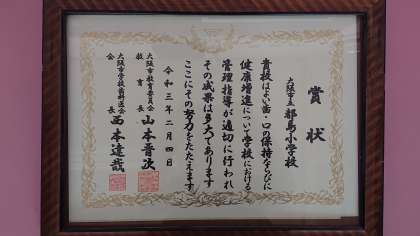 賞状
大阪市立 都島小学校
貴校はよい歯・口の保持ならびに
健康増進について学校における
管理指導が適切に行われ
その成果は多大であります
ここにその努力をたたえます
令和三年二月四日
大阪市教育委員会
教育長 山本晋次
大阪市学校歯科医会
会長 西本達哉